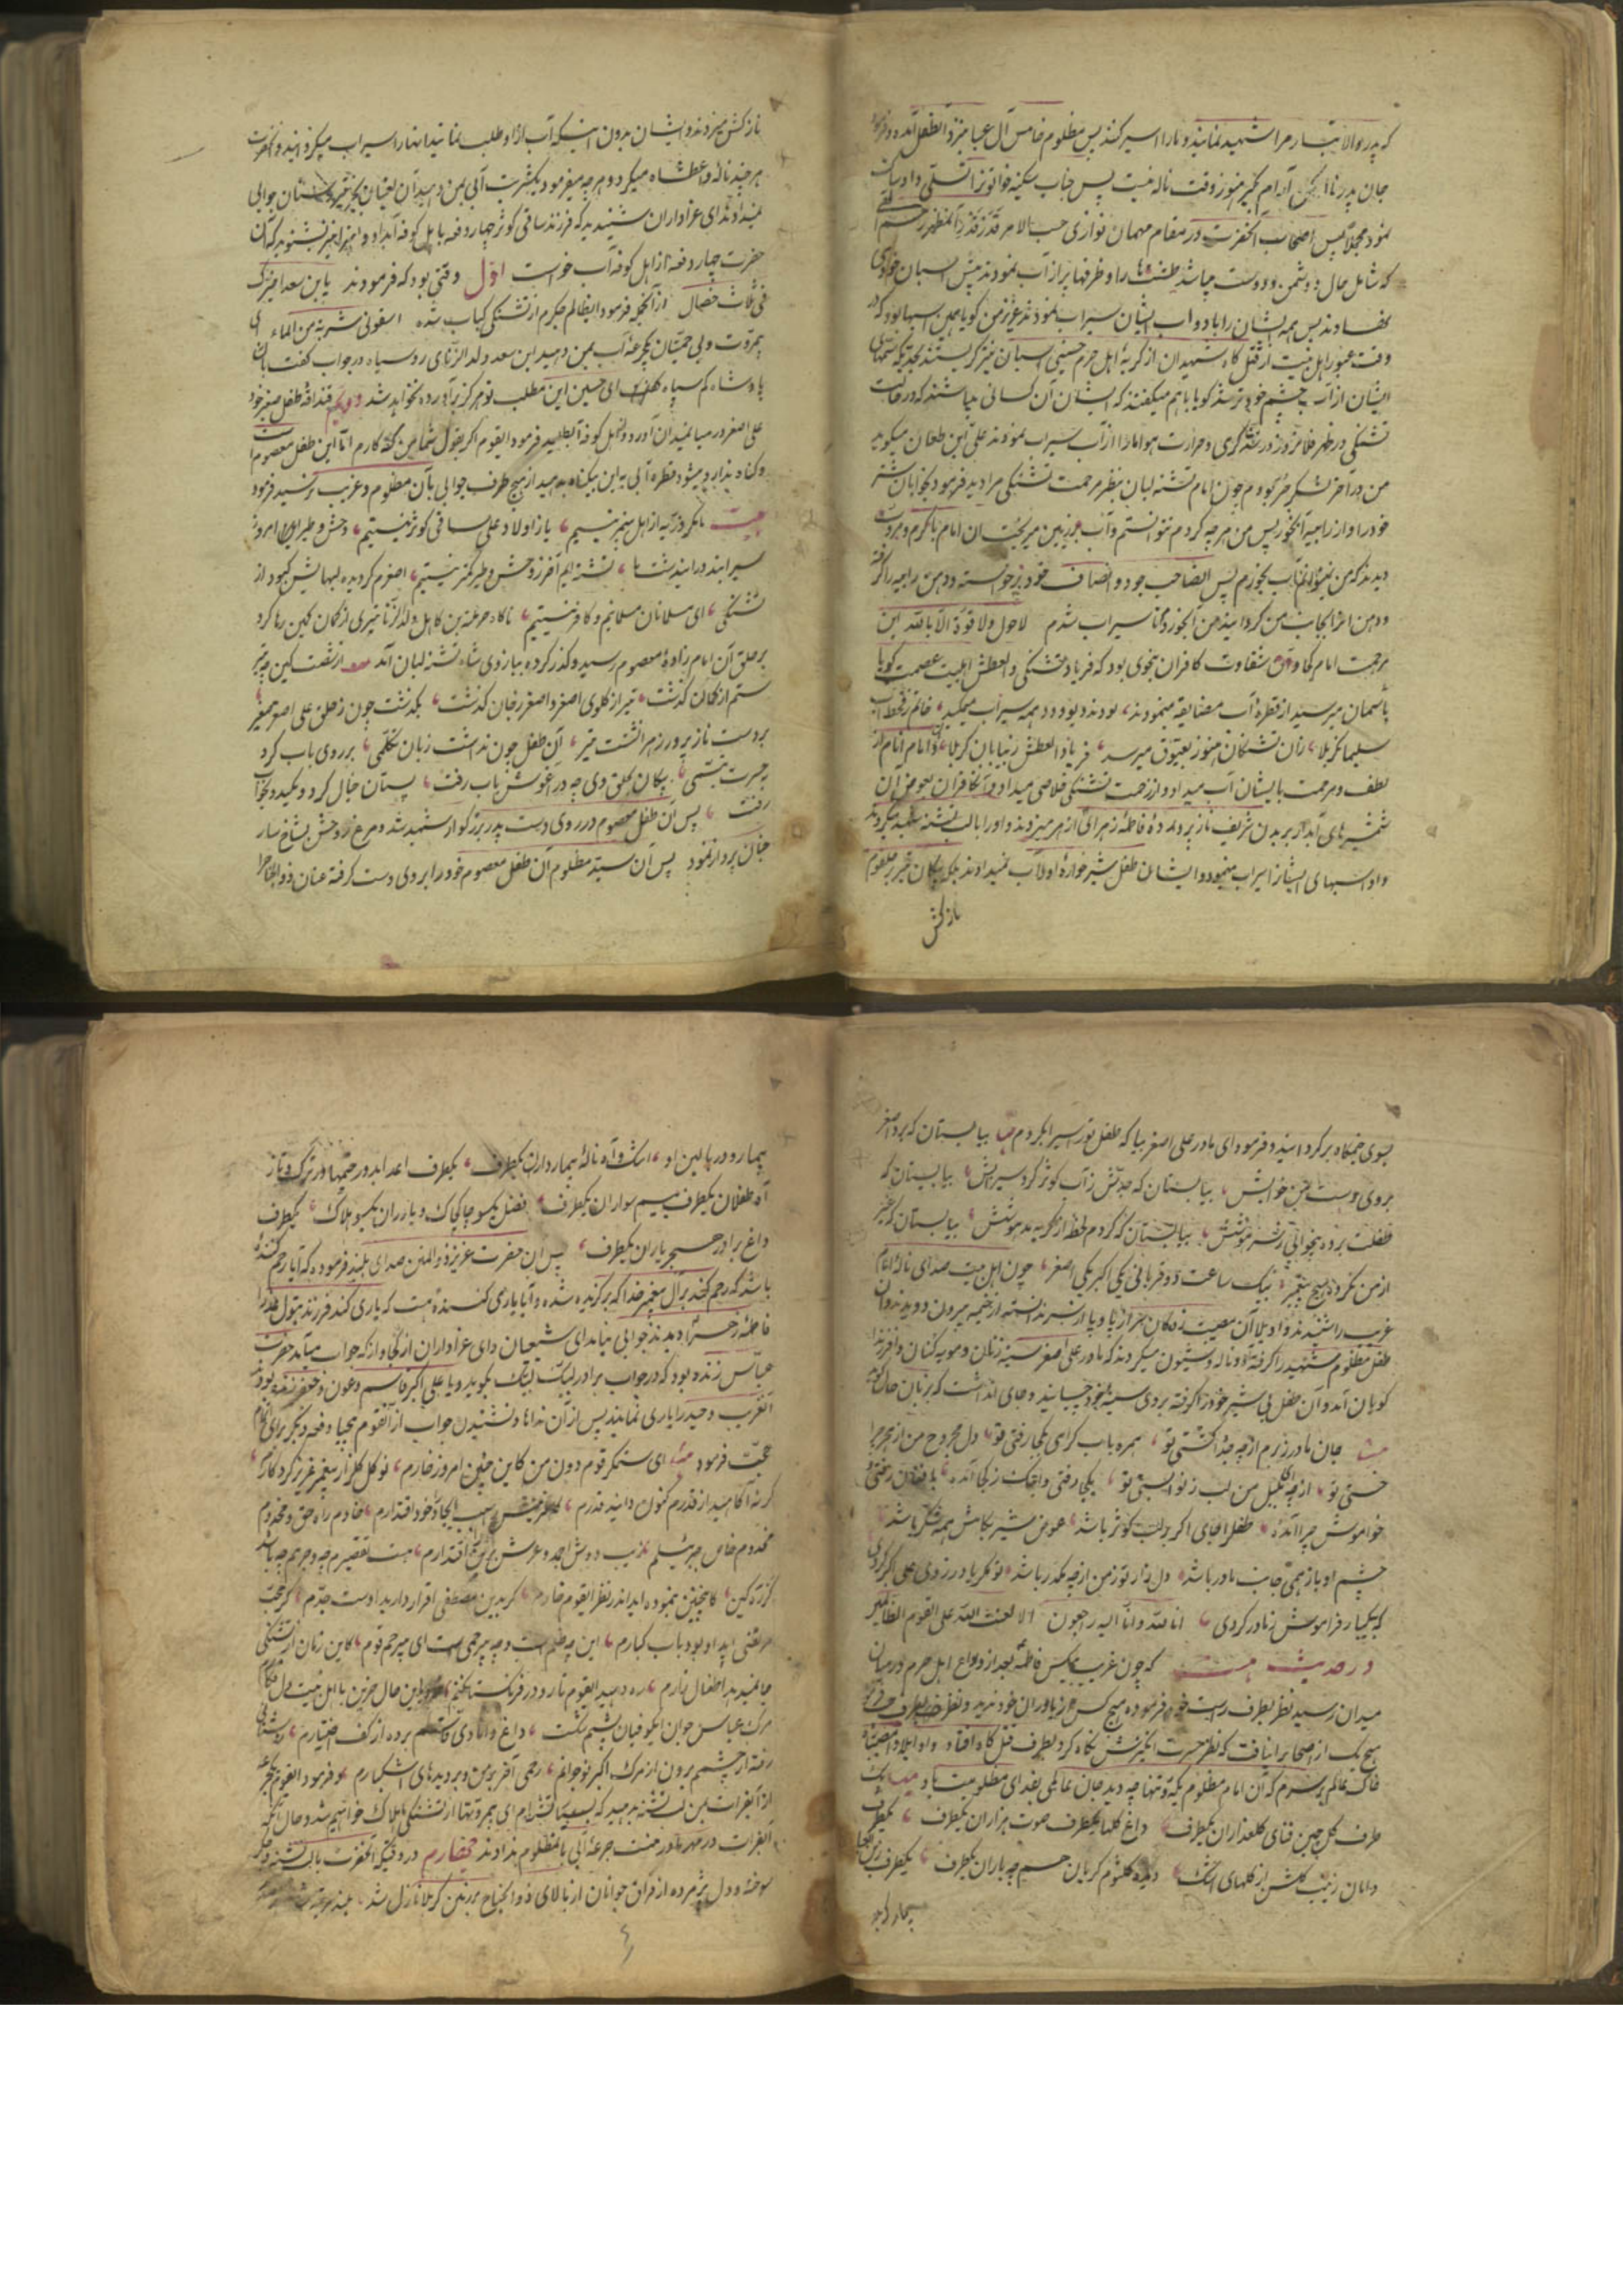 که پدر والاتبار مرا شهید نمایند و مارا اسیر کنند پس مظلوم خامس آل عبا نزد آن طفل آمده و فرمود
جان پدر نالە مکن آرام گیر هنوز وقت ناله نیست پس جناب سکینه خواتون را تسلی داد
نمود مجملا پس اصحاب آنحضرت در مقام مهمان نوازی حسب الامر
که شامل حال دوشمن و دوست میباشد طشت ها را و ظرفها پر از آب نمودند پیش اسبان
نهادند پس همه ایشان را با دواب ایشان سیراب نمودند عزیز من گویا همین اسبها بود که در
وقت عبور اهل بیت از قتل گاه شهیدان از گریهٔ اهل حرم حسینی اسبان نیز گریستند
ایشان از آب چشم خود تر شد گویا با هم میگفتند که ایشان آن کسانی میباشند که در حالت
تشنگی در ظهر فلان روز در شدّت گرمی و حرارت هوا مارا از آب سیراب نمودند علی ابن طعان میگوید
من در آخر لشکر حر بودم چون امام تشنه لبان بنظر مرحمت تشنگی مرا دید فرمود بخوابان شتر
خود را و از راویه آبخور پس من هر چه کردم نتوانستم و آب بر زمین میریخت آن امام با کرم و مروّت
دیدند که من نمیتوانم آب بخورم پس آنصاحب جود و انصاف خود برخواسته دهن راویه را گرفته
و دهن آنرا بجانب من گردانیدند من آبخوردم تا سیراب شدم لاحول ولا قوة الا بالله این
مرحمت امام کجا و آن شقاوت کافران بنحوی بود که فریاد تشنگی و العطش اهلبیت عصمت گویا
بآسمان میرسید از قطرهٔ آب مضایقه مینمودند، بودند دیو و دد همه سیراب میمکید، خاتم ز قحط آب
سلیمان کربلا، زان تشنگان هنوز بعیّوق میرسد، فریاد العطش ز بیابان کربلا، آن امام انام از
لطف و مرحمت بایشان آب میداد و از زحمت تشنگی خلاصی میداد و آنکافران بعوض آن
شمشیرهای آبدار بر بدن شریف ناز پرورده فاطمه زهرائی از هر سر میزدند و او را با لب تشنه شهید میکردند
و او اسبهای ایشانرا سیراب مینمود و ایشان طفل شیر خوارهٔ او را آب نمیدادند بلکه پیکان تیر بر حلقوم
نازکش
نازکش میزدند و ایشان بدون اینکه آب از او طلب نمایند آنها را سیراب میگردانیدند و آنحضرت
هر چند ناله واعطشاه میکرد و هر چه میفرمود یکشربت آبی بمن دهید آن لعینان بجز تیر و سنان جوابی
نمیدادند ای عزاداران شنیدید که فرزند ساقی کوثر چهار دفعه باهل کوفه آب داد و اینرا نیز بشنوید که آن
حضرت چهار دفعه از اهل کوفه آب خواست اوّل وقتی بود که فرمودند یابن سعد اخترک
فی ثلاث خصال از آنجمله فرمود ایظالم جگرم از تشنگی کباب شده اسقونی شربة من الماء ای
بیمروّت و بی حمیّتان یکجرعه آب بمن دهید ابن سعد ولد الزّنای رو سیاه در جواب گفت باین
پادشاه کم سپاه که ای حسین این مطلب تو هرگز برآورده نخواهد شد دویم قنداقهٔ طفل صغیر خود
علی اصغر در میان میدان آورد و از اهل کوفه آبطلبید فرمود ایقوم اگر بقول شما من گنه کارم امّا این طفل معصوم است
و گناه ندارد میشود قطره آبی به این بیگناه بدهید از هیچ طرف جوابی بآن مظلوم و غریب نرسید فرمود
بیت ما مگر ذرّیه از اهل پیمبر نیستیم، یا ز اولاد علی ساقی کوثر نیستیم، وحش و طیر امروز
سیرابند در ایندشت ما، تشنه ایم آخر ز وحش و طیر کمتر نیستیم، اصغرم گردیده لبهایش کبود از
تشنگی، ای مسلمانان مسلمانیم و کافر نیستیم، ناگاه حرمله بن کاهل ولد الزّنا تیری از کمان کین رها کرد
بر حلق آن امام زاده معصوم رسید و گذر کرده ببازوی شاه تشنه لبان آمد از شصت کین چو تیر
ستم از کمان گذشت، تیر از گلوی اصغر و اصغر ز جان گذشت، بگذشت چون ز حلق علی اصغر صغیر
بر دست ناز پرور زهرا نشست تیر، آن طفل چون نداشت زبان تکلّمی، بر روی باب کرد
بحسرت تبسّمی، پیکان بحلق وی چو در آغوش باب رفت، پستان خیال کرد و مکید و بخواب
رفت، پس آن طفل معصوم در روی دست پدر بزرگوار شهید شد و مرغ روحش بشاخسار
جنان پرواز نمود پس آن سیّد مظلوم آن طفل معصوم خود را بروی دست گرفته عنان ذوالجناح را
بسوی خیمگاه برگردانیده و فرمود ای مادر علی اصغر بیا که طفل تورا سیراب کردم بیا بستان که بردم اصغر
بروی دست من خوابش، بیا بستان که جدّش ز آب کوثر کرد سیرابش، بیا بستان که
غفلت برده بیخوابی ز سر هوشش، بیا بستان که کردم لحظهٔ از گریه مدهوشش، بیا بستان که غیر
از من نکرده هیچ پیغمبر، بیک ساعت دو قربانی یکی اکبر یکی اصغر، چون اهل بیت صدای نالهٔ امام
غریب را شنیدند واویلا آن مصیبت زدگان سر از پا و پا از سر ندانسته از خیمه بیرون دویدند و آن
طفل مظلوم شهید را گرفته آه و ناله و شیون میکردند که مادر علی اصغر سینه زنان و مویه کنان وا فرزندا
گویان آمد و آن طفل بی شیر خود را گرفته بروی سینهٔ خود چسپانید و جای آنداشت که بزبان حال گوید
جان مادر ز برم از چه جدا گشتی تو، همره باب گرامی بکجا رفتی تو، دل مجروح من از هجر چرا
خستی تو، از چه ای بلبل من لب ز نوا بستی تو، بکجا رفتی و اینک ز کجا آمدهٔ، با فغان رفتی و
خواموش چرا آمدهٔ، طفل را جای اگر بر لب کوثر باشد، عوض شیر بکامش همه شکّر باشد،
چشم او باز همی جانب مادر باشد، دل زار تو ز من از چه مکدّر باشد، تو مگر یاد ز روی علی اکبر کردی
که بیکبار فراموش ز مادر کردی، انا لله وانا الیه راجعون الا لعنت الله علی القوم الظالمین
در حدیث هست که چون غریب بیکس فاطمه بعد از وداع اهل حرم در میان
میدان رسید نظر بطرف راست خود فرموده هیچ کس از یاوران خود ندید و نظر بطرف چپ فرمود
هیچ یک از اصحاب را نیافت که نظر حسرت انگیزش نگاه کرد بطرف قتل گاه افتاد واویلا وامصیبتاه
خاک عالم بر سرم که آن امام مظلوم یکه و تنها چه دید جان عالمی بفدای مظلومیت باد
طرف گل چین فنای گلعذاران یکطرف، داغ گلها یکطرف صوت هزاران یکطرف، یکطرف
دامان زینب گلشن از گلهای اشک، دیدهٔ کلثوم گریان همچو باران یکطرف، یکطرف
بیمار کربلا
بیمار و در بالین او، اشک و آه و نالهٔ بیمارداران یکطرف، یکطرف اعدا بدور خیمها در ترک و تاز
آه طفلان یکطرف بیم سواران یکطرف، نعش یکسو چاک چاک و یاوران یکسو هلاک، یکطرف
داغ برادر هجر یاران یکطرف، پس آن حضرت عزیز ذوالمنن صدای بلند فرموده که آیا رحم کنندهٔ
باشد که رحم کند بر آل پیغمبر خدا که برگزیده شده و آیا یاری کنندهٔ هست که یاری کند فرزند بتول عذرا
فاطمه زهرا را دیدند جوابی نیامد ای شیعیان و ای عزاداران از کجا و از که جواب میآید حضرت
عبّاس زنده بود که در جواب برادر لبیّک لبیّک بگوید و یا علی اکبر و قاسم و عون و جعفر زنده بودند
آنغریب و وحید را یاری نمایند پس از آن نداها و نشنیدن جواب از آنقوم بیحیا دفعه دیگر برای اتمام
حجّت فرمود ای ستمگر قوم دون من کاین چنین امروز خوارم، نو گل گلزار پیغمبر عزیز کردگارم،
گر نه آگاهید از قدرم کنون دانید قدرم، آفرینش را سبب ایجاد خود اقتدارم، خادم راه حق و مخدوم
مخدوم خاص جبرئیلم، زیب دوش احمد و عرش برین اقتدارم، چیست تقصیرم چه جرمم چه باشد
کز ره کین، کاینچنین بنموده اید اندر نظر ایقوم خوارم، گر بدین مصطفی اقرار دارید اوست جدّم، گر محبّ
مرتضی اید او بود باب کبارم، این چه ظلم است و چه بیرحمی است ای بیرحم قوم، کاین زمان از تشنگی
جانمیدهد اطفال زارم، ره دهید ایقوم تا رو در فرنگستان کنم، با این حال حزین با اهل بیت
مرگ عباس جوان ایکوفیان پشتم شکست، داغ دامادی قاسم برده از کف اختیارم، روشنائی
رفته از چشمم برون از مرگ اکبر نوجوانم، رحمی آخر بر من و بر دیدهای اشکبارم، و فرمود ایقوم یکجرعه
از آب فرات بمن لب تشنه بدهید که بسیار تشنه ام ای بیمروّتها از تشنگی هلاک خواهیم شد و حال آنکه
آب فرات در مهر مادر منست جرعهٔ آبی بآنمظلوم ندادند چهارم در وقتیکه آنحضرت با لب تشنه و جگر
سوخته و دل پژمرده از فراق جوانان از بالای ذوالجناح بر زمین کربلا نازل شد